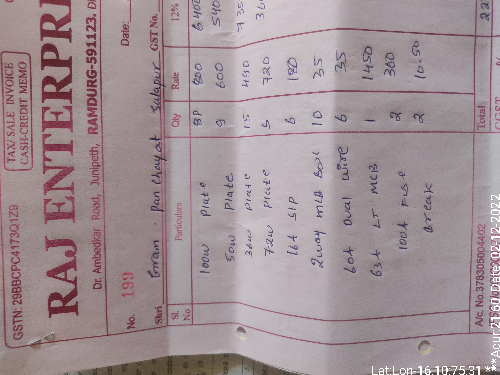 GSTN: 29BBCPC4173Q1Z9
TAX/ SALE INVOICE
CASH-CREDIT MEMO
RAJ ENTERPRI
Dr. Ambedkar Road, Junipeth, RAMDURG-591123.
No. 199 Date:
Shri Gram panchayat Salapur GST No.
Sl. No Particulars Qty Rate 12%
100w plate 8P 800 6400
50w plate 9 600 540
36w plate 15 490 735
72w plate 5 720 360
16A S/P 6 180
2way MCB Box 10 35
60A Dual wire 6 35
63A LT MCB 1 1450
100A Fuse 2 360
Break 2 10.50
Total 22
A/c. No.378305004402
Lat Lon-16.10,75.31 **
**Acur:21.80//Date:02-12-2022